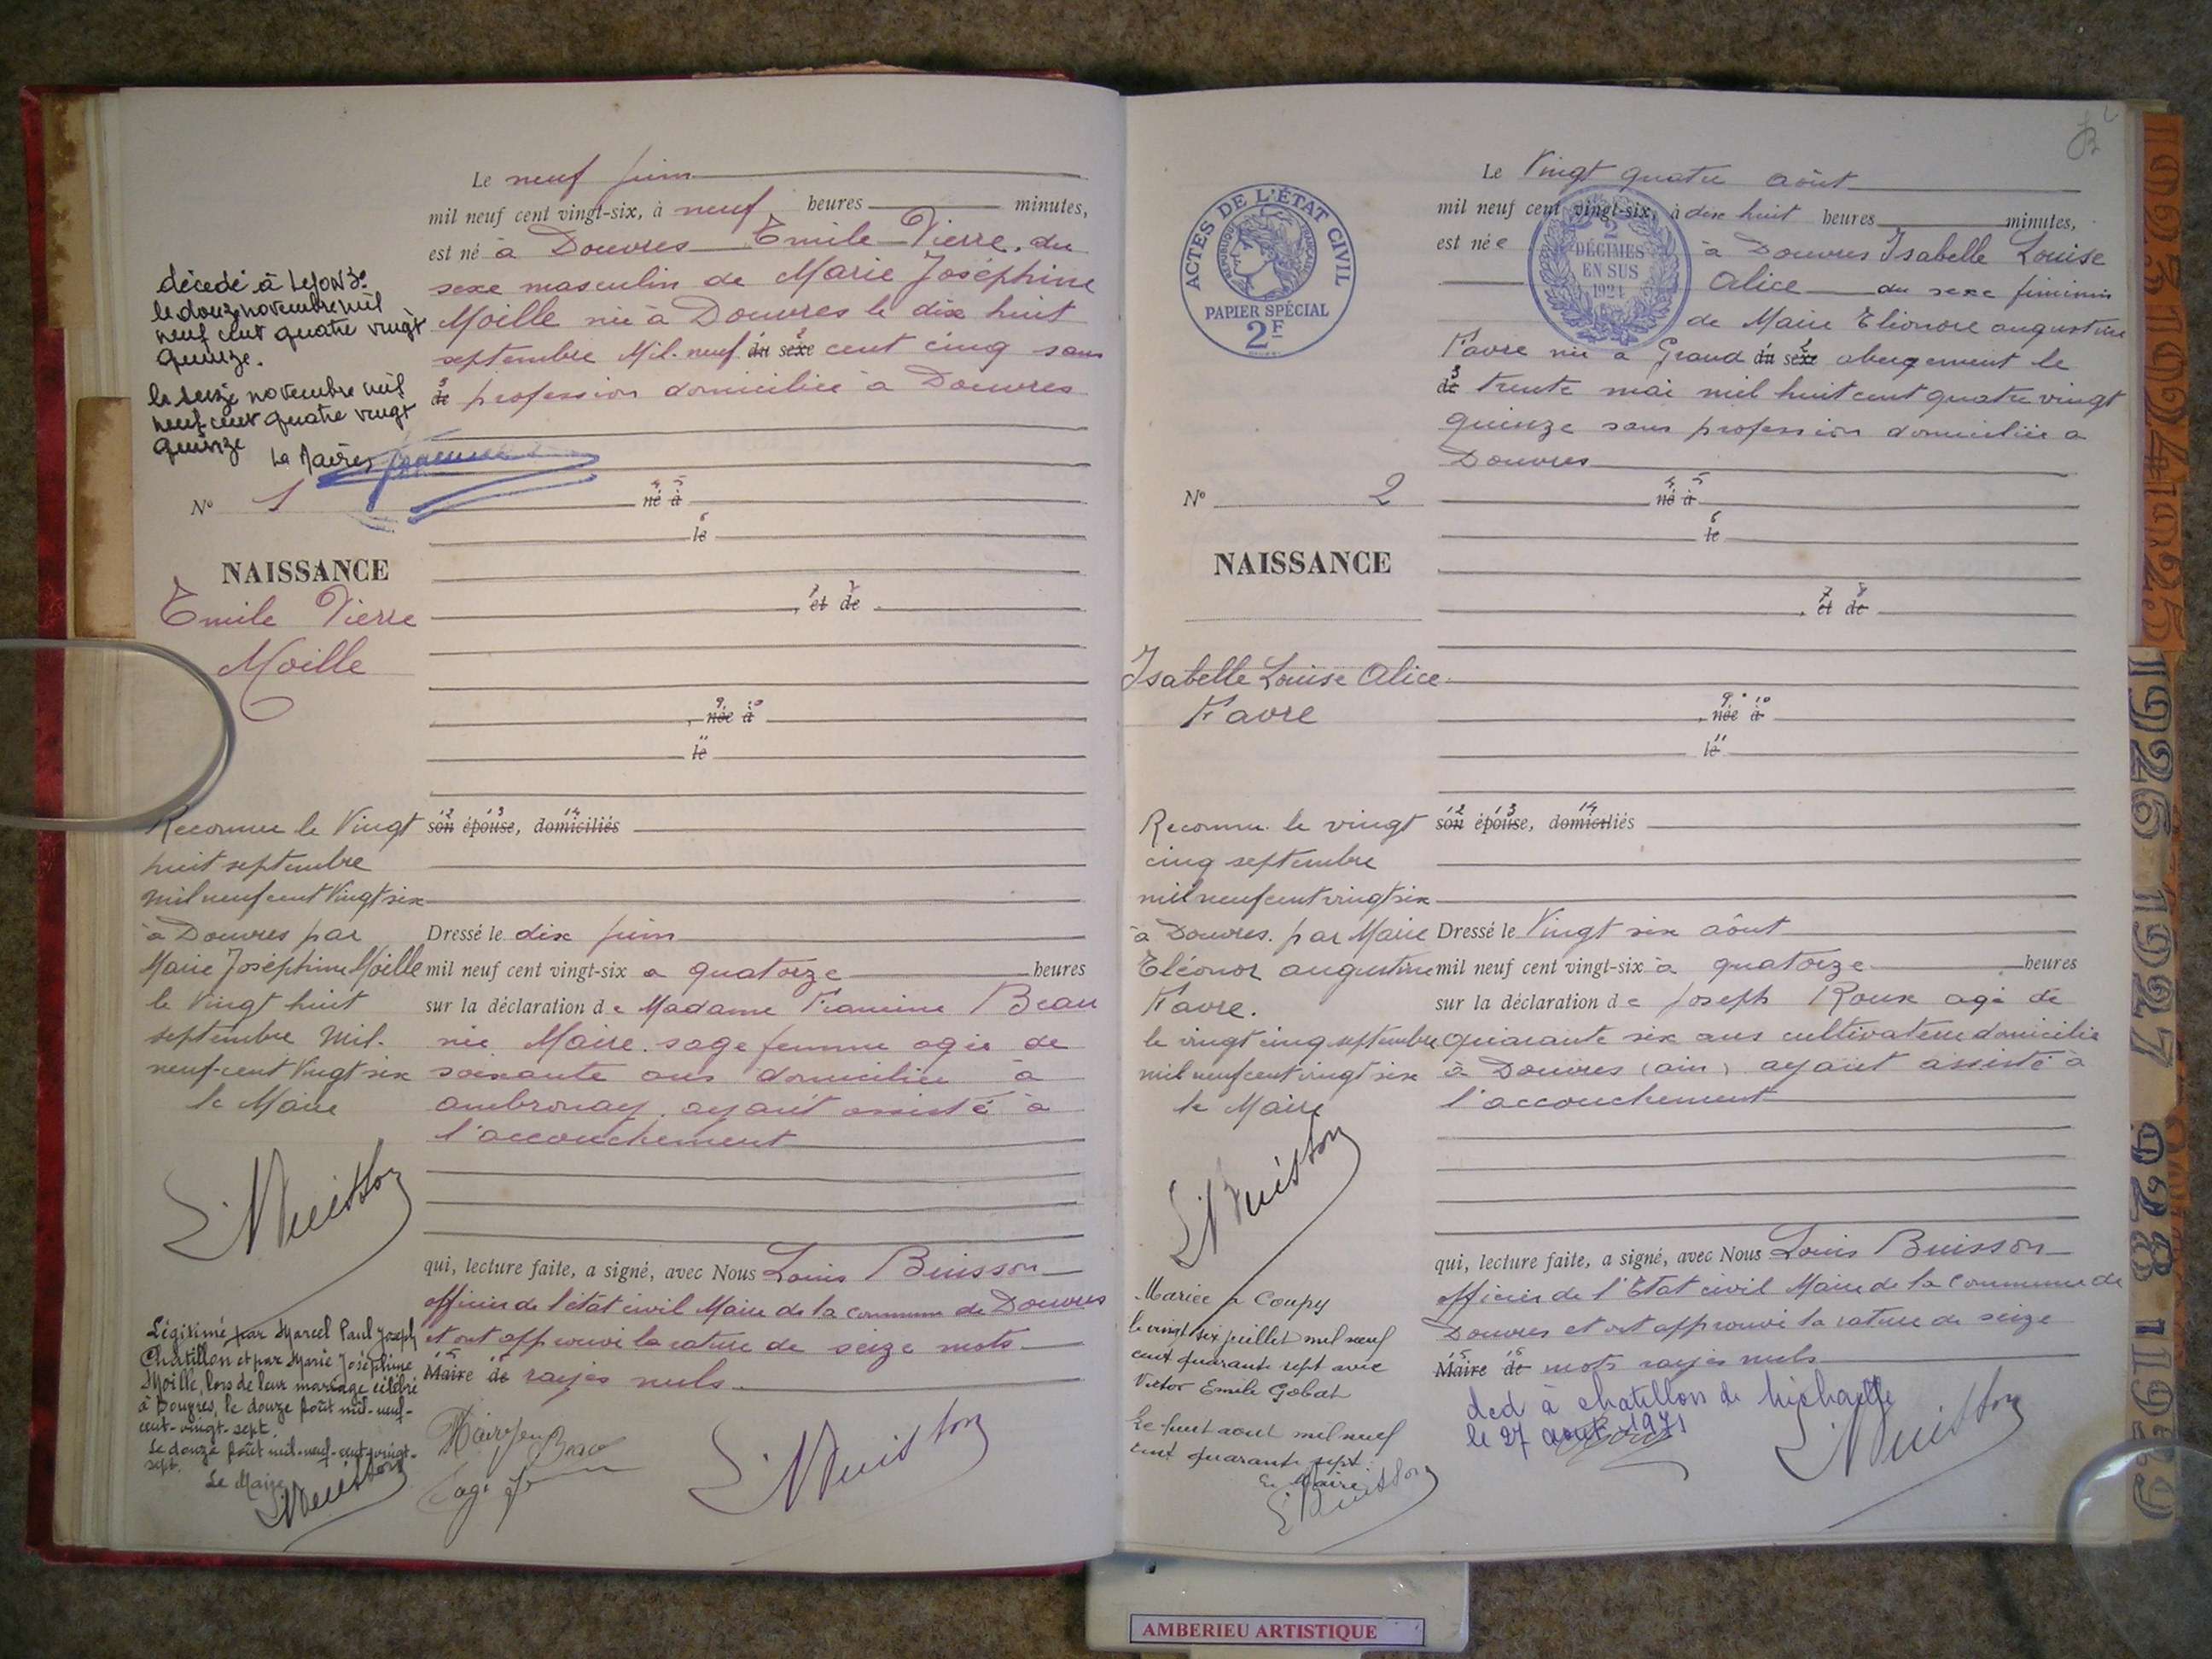 décédé à LYON 3e
le douze novembre mil
neuf cent quatre vingt
quinze.
le seize novembre mil
neuf cent quatre vingt
quinze
Le Maire,
Nº 1
NAISSANCE
Emile Pierre
Moille
Reconnu le Vingt
huit septembre
mil neuf cent Vingt six
à Douvres par
Marie Joséphine Moille
le Vingt huit
septembre Mil-
neuf-cent Vingt six
le Maire
L. Buisson
Légitimé par Marcel Paul Joseph
Chatillon et par Marie Joséphine
Moille, lors de leur mariage célébré
à Douvres, le douze Août mil-neuf-
cent-vingt-sept.
Le douze Août mil-neuf-cent-vingt-
sept.
Le Maire
L. Buisson
Le neuf juin
mil neuf cent vingt-six, à neuf heures minutes,
est né à Douvres Emile Pierre. du
sexe masculin de Marie Joséphine
Moille née à Douvres le dix huit
septembre Mil-neuf du sexe cent cinq sans
de profession domiciliée à Douvres
né à
le
, et de
, née à
le
son épouse, domiciliés
Dressé le dix juin
mil neuf cent vingt-six a quatorze heures
sur la déclaration de Madame Francine Beau
née Maire. sage femme agée de
soixante ans domiciliée à
ambronay. ayant assisté à
l'accouchement
qui, lecture faite, a signé, avec Nous Louis Buisson
officier de l'état civil Maire de la commune de Douvres
et ont approuvé la rature de seize mots
Maire de rayés nuls.
Beau
Sage f
L. Buisson
ACTES DE L'ÉTAT CIVIL
RÉPUBLIQUE FRANÇAISE
PAPIER SPÉCIAL
2F
Nº 2
NAISSANCE
Isabelle Louise Alice
Favre
Reconnu le vingt
cinq septembre
mil neuf cent vingt six
à Douvres. par Marie
Eléonor augustine
Favre.
le vingt cinq septembre
mil neuf cent vingt six
le Maire
L. Buisson
Mariée à Coupy
le vingt six juillet mil neuf
cent quarante sept avec
Victor Emile Gobat
Le huit août mil neuf
cent quarante sept
Le Maire
L. Buisson
Le Vingt quatre août
mil neuf cent vingt-six, à dix huit heures minutes,
2 DÉCIMES EN SUS 1924
est née à Douvres Isabelle Louise
Alice du sexe féminin
de Marie Eléonore augustine
Favre née à Grand du sexe abergement le
de trente mai mil huit cent quatre vingt
quinze sans profession domiciliée à
Douvres
né à
le
, et de
, née à
le
son épouse, domiciliés
Dressé le Vingt six août
mil neuf cent vingt-six à quatorze heures
sur la déclaration de Joseph Roux agé de
quarante six ans cultivateur domicilié
à Douvres (ain) ayant assisté à
l'accouchement
qui, lecture faite, a signé, avec Nous Louis Buisson
officier de l'Etat civil Maire de la Commune de
Douvres et ont approuvé la rature de seize
Maire de mots rayés nuls
dcd à chatillon de Michaille
le 27 août 1971
L. Buisson
1925
1926 1927
1928 1929
AMBERIEU ARTISTIQUE